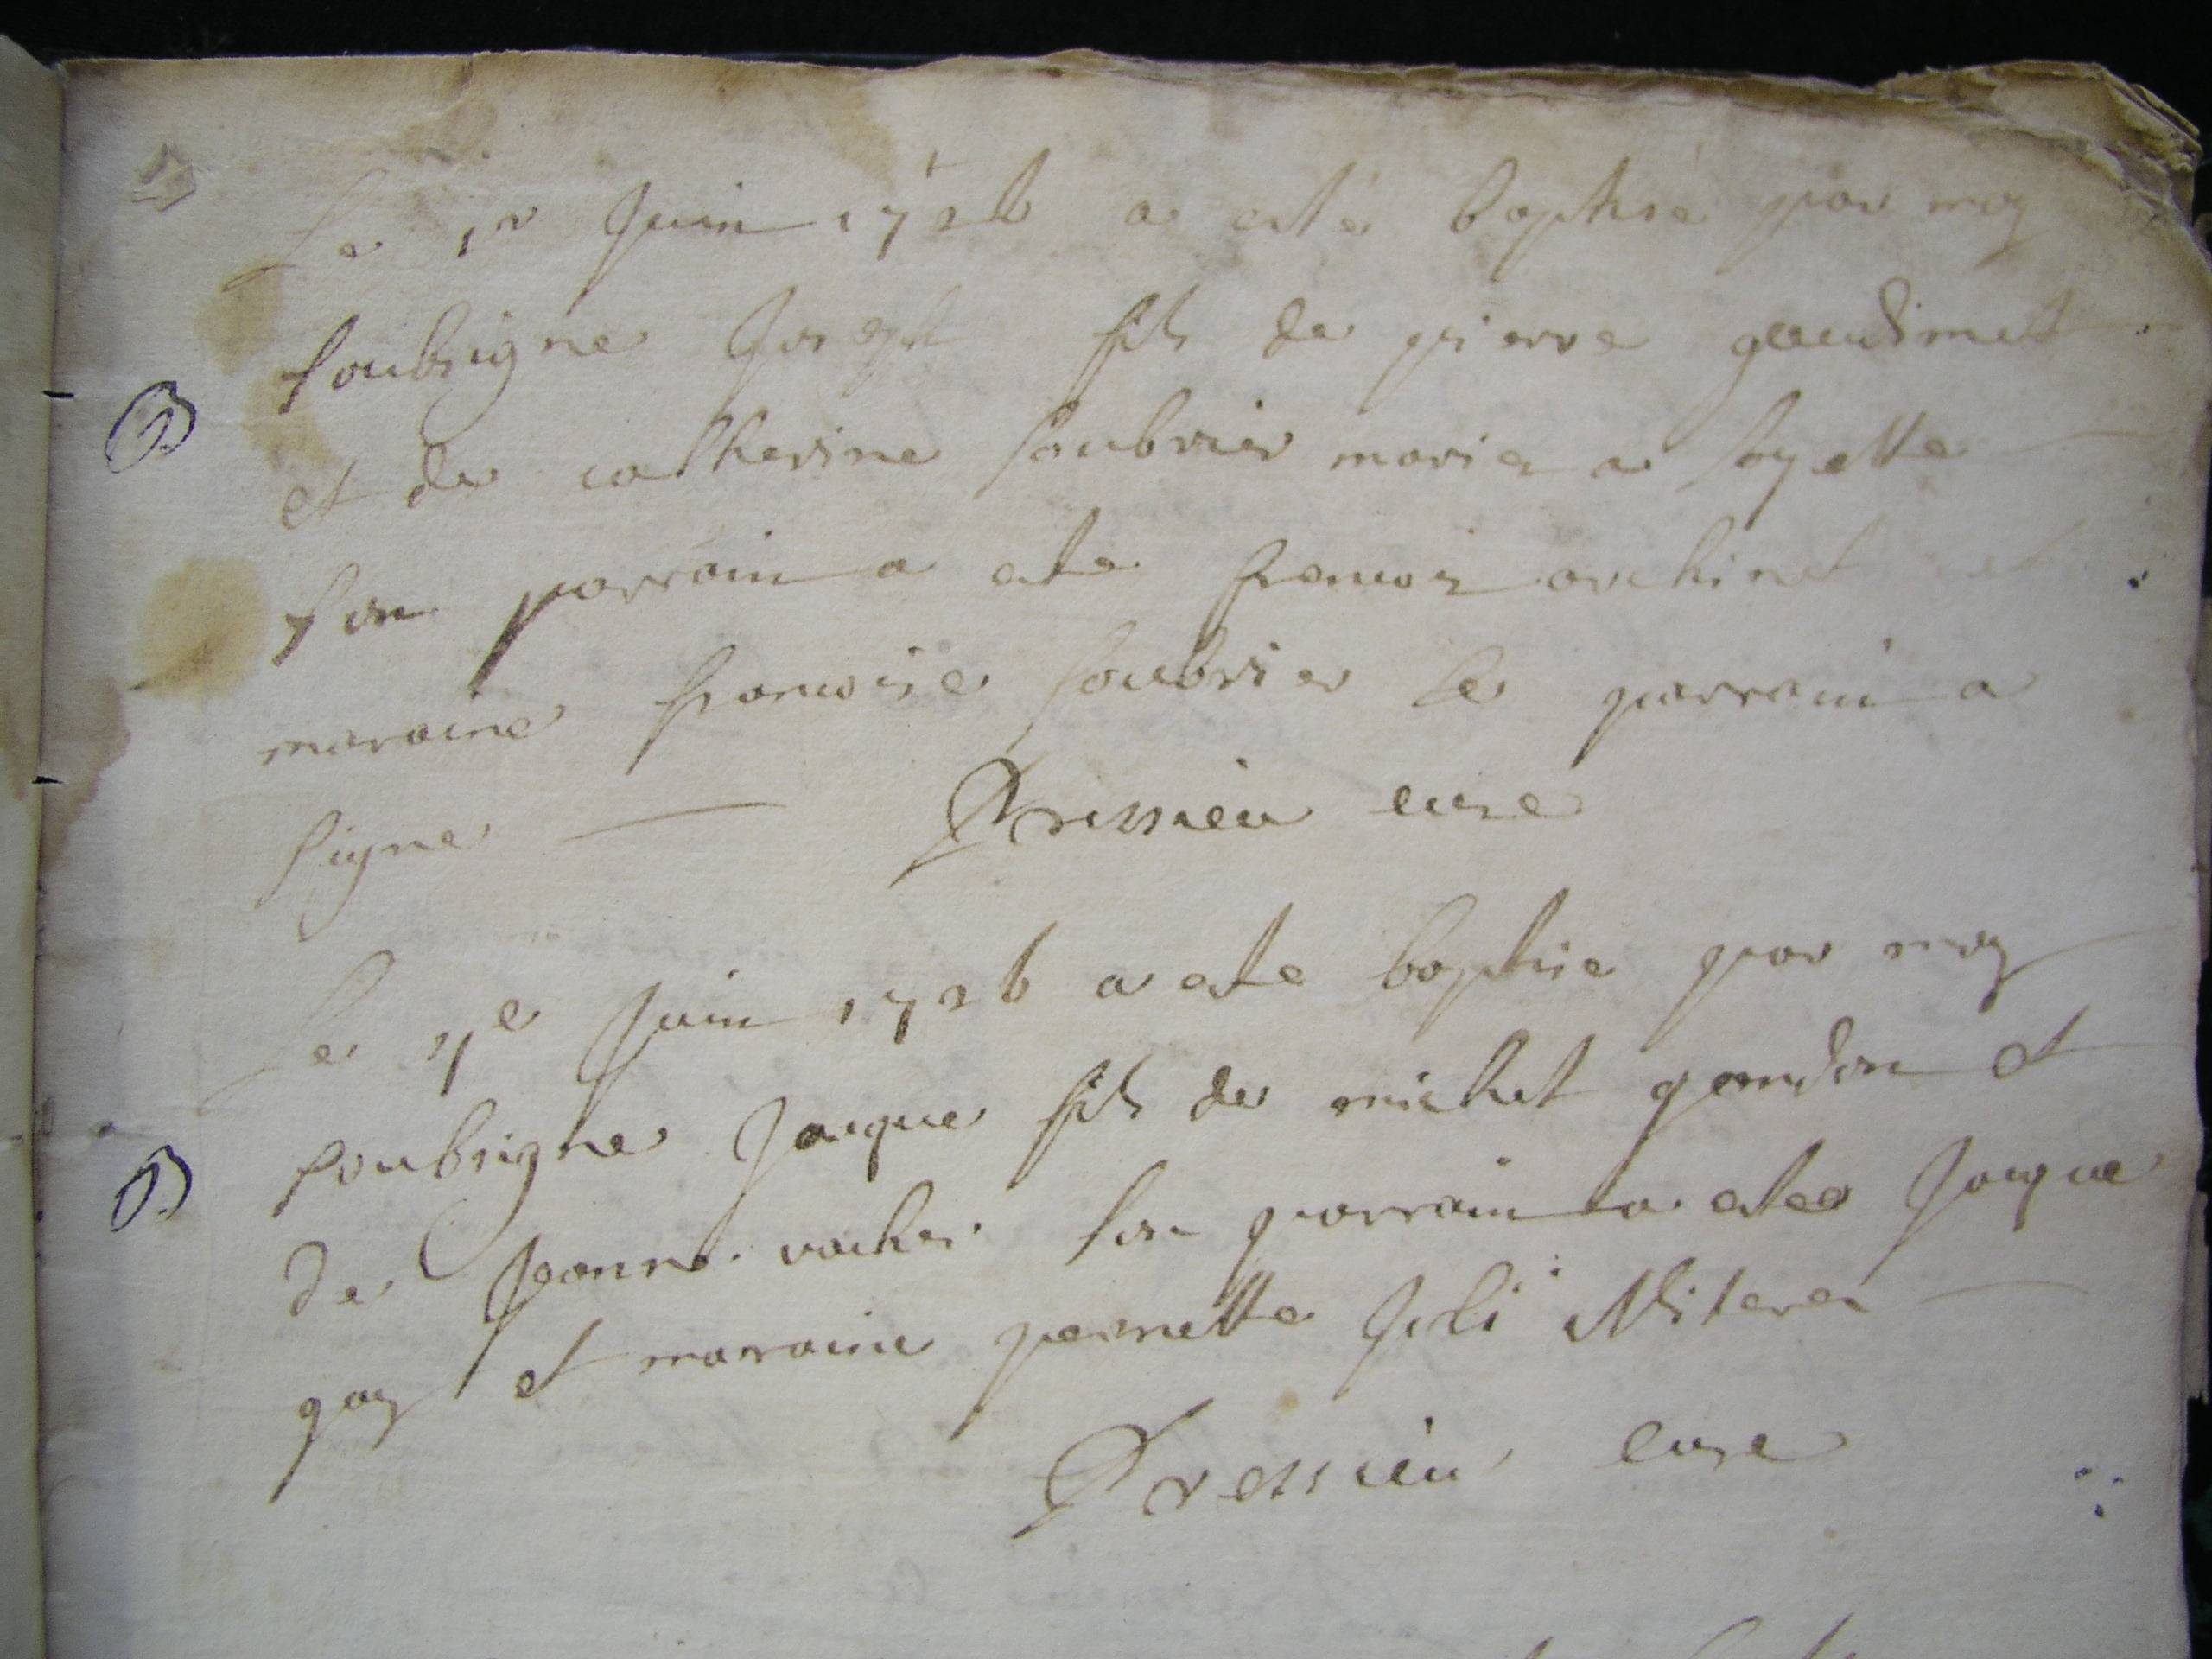 Le 1r Juin 1726 a esté baptisé par moy
soubsigne Joseph fils de pierre gaudinet
et de catherine soubrier mariez a syette
son parrain a este francois archinet et
maraine francoise soubrier le parrain a
signe
Dressieu cure
Le 11e Juin 1726 a este baptise par moy
soubsigne Jaque fils de michel gandon et
de Jeanne vacher son parrain a estee Jaque
gay et maraine pernette Joli illiterez
Dressieu cure